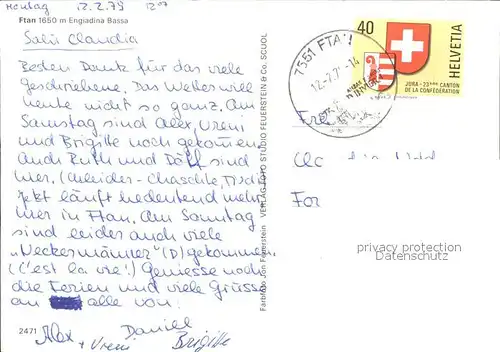 Montag 12.2.79 12.07
Ftan 1650 m Engiadina Bassa
Salü Claudia
Besten Dank für das viele
geschriebene. Das Wetter will
heute nicht so ganz. Am
Samstag sind Alex, Vreni
und Brigitte noch gekommen.
Auch Ruth und Dölf sind
hier.
jetzt läuft bedeutend mehr
hier in Ftan. Am Samstag
sind leider auch viele
"Neckermänner" (D) gekommen.
(C'est la vie!) Geniesse noch
die Ferien und viele Grüsse
an alle von:
Alex Daniel
+ Vreni Brigitte
2471
VERLAG FOTO STUDIO FEUERSTEIN & CO. SCUOL
Farbfoto Jon Feuerstein
7551 FTAN
12.-2.7 -14
40
HELVETIA
JURA - 23ème CANTON
DE LA CONFEDERATION
For
privacy protection
Datenschutz